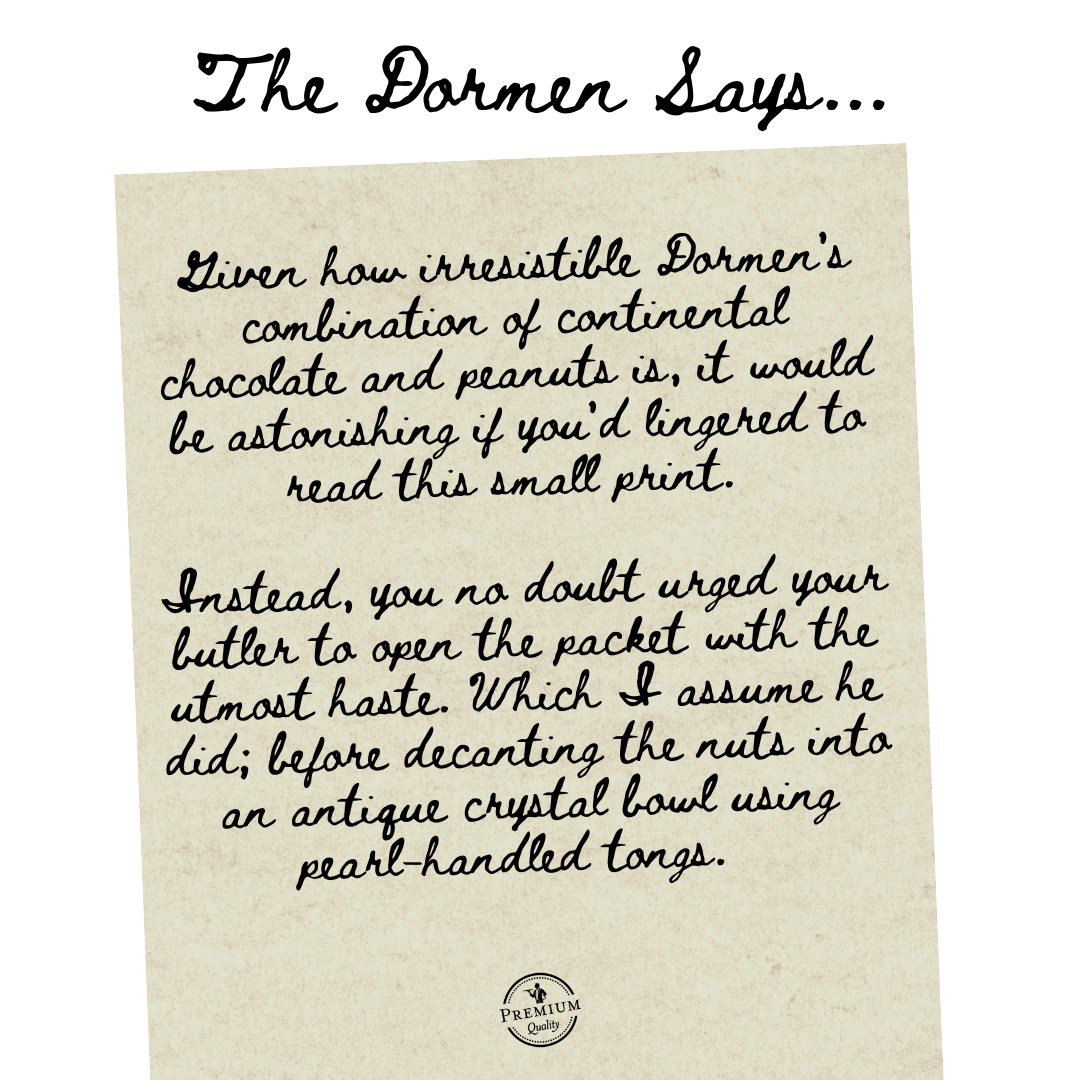 The Dormen Says...
Given how irresistible Dormen's
combination of continental
chocolate and peanuts is, it would
be astonishing if you'd lingered to
read this small print.
Instead, you no doubt urged your
butler to open the packet with the
utmost haste. Which I assume he
did; before decanting the nuts into
an antique crystal bowl using
pearl-handled tongs.
PREMIUM
Quality